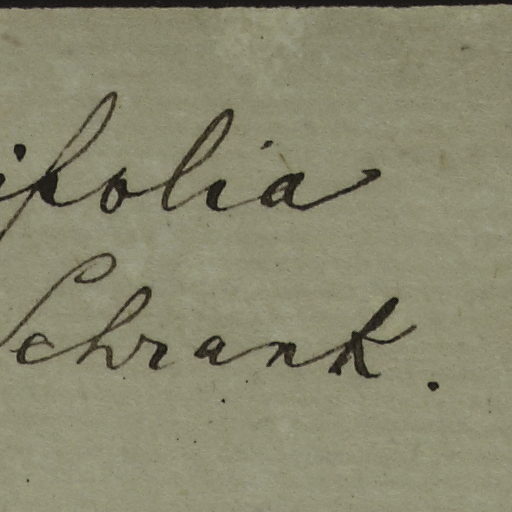 ifolia
Schrank.